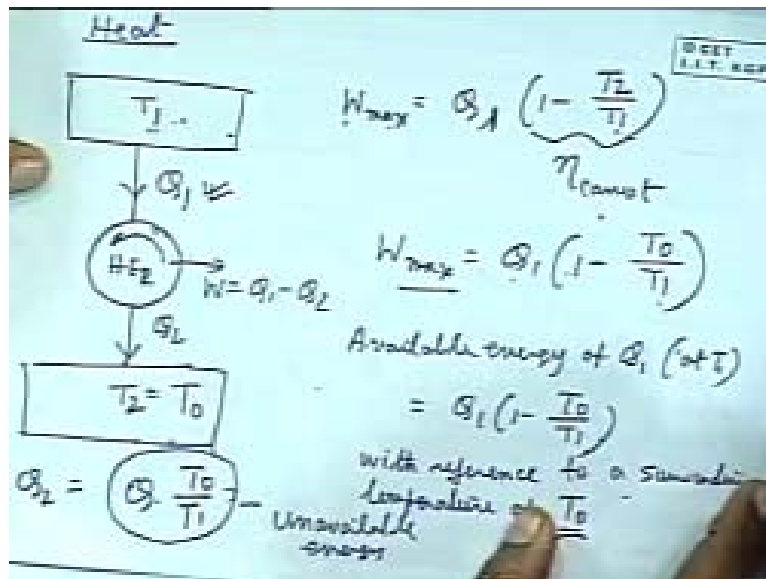 Heat
T1
Q1
HE2
W = Q1 - Q2
Q2
T2 = T0
Q2 = Q T0/T1
Unavailable
energy
I.I.T. KGP
Wmax = Q1 (1 - T2/T1)
ηcarnot
Wmax = Q1 (1 - T0/T1)
Available energy of Q1 (at T)
= Q1 (1 - T0/T1)
with reference to a
temperature of T0